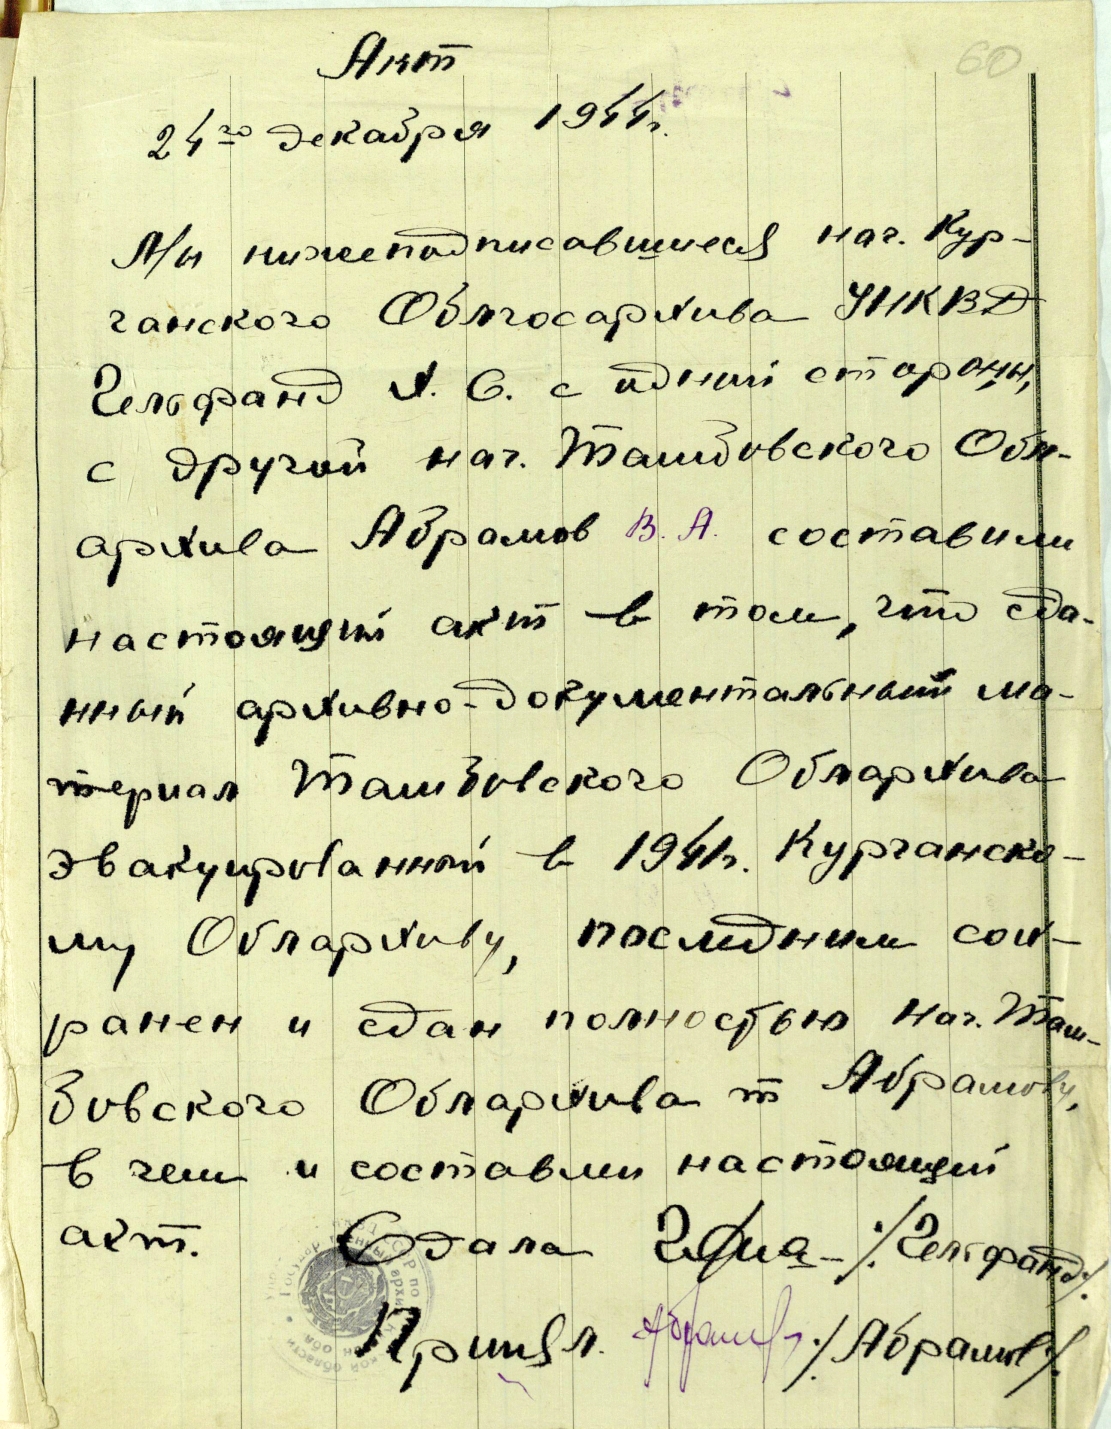 60
Акт
24го декабря 1944г.
Мы нижеподписавшиеся нач. Кур-
ганского Облгосархива УНКВД
Гельфанд Х. С. с одной стороны,
с другой нач. Тамбовского Обл-
архива Абрамов В. А. составили
настоящий акт в том, что сда-
нный архивно-документальный ма-
териал Тамбовского Облархива
эвакуированный в 1941г. Курганско-
му Облархиву, последним сох-
ранен и сдан полностью нач. Там-
бовского Облархива т Абрамову,
в чем и составили настоящий
акт. Сдала /Гельфанд/.
Принял. Абрамов /Абрамов/.